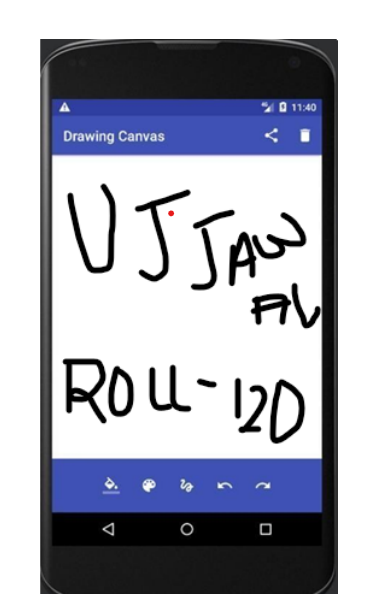 11:40
Drawing Canvas
UJJAW
AL
ROLL-120